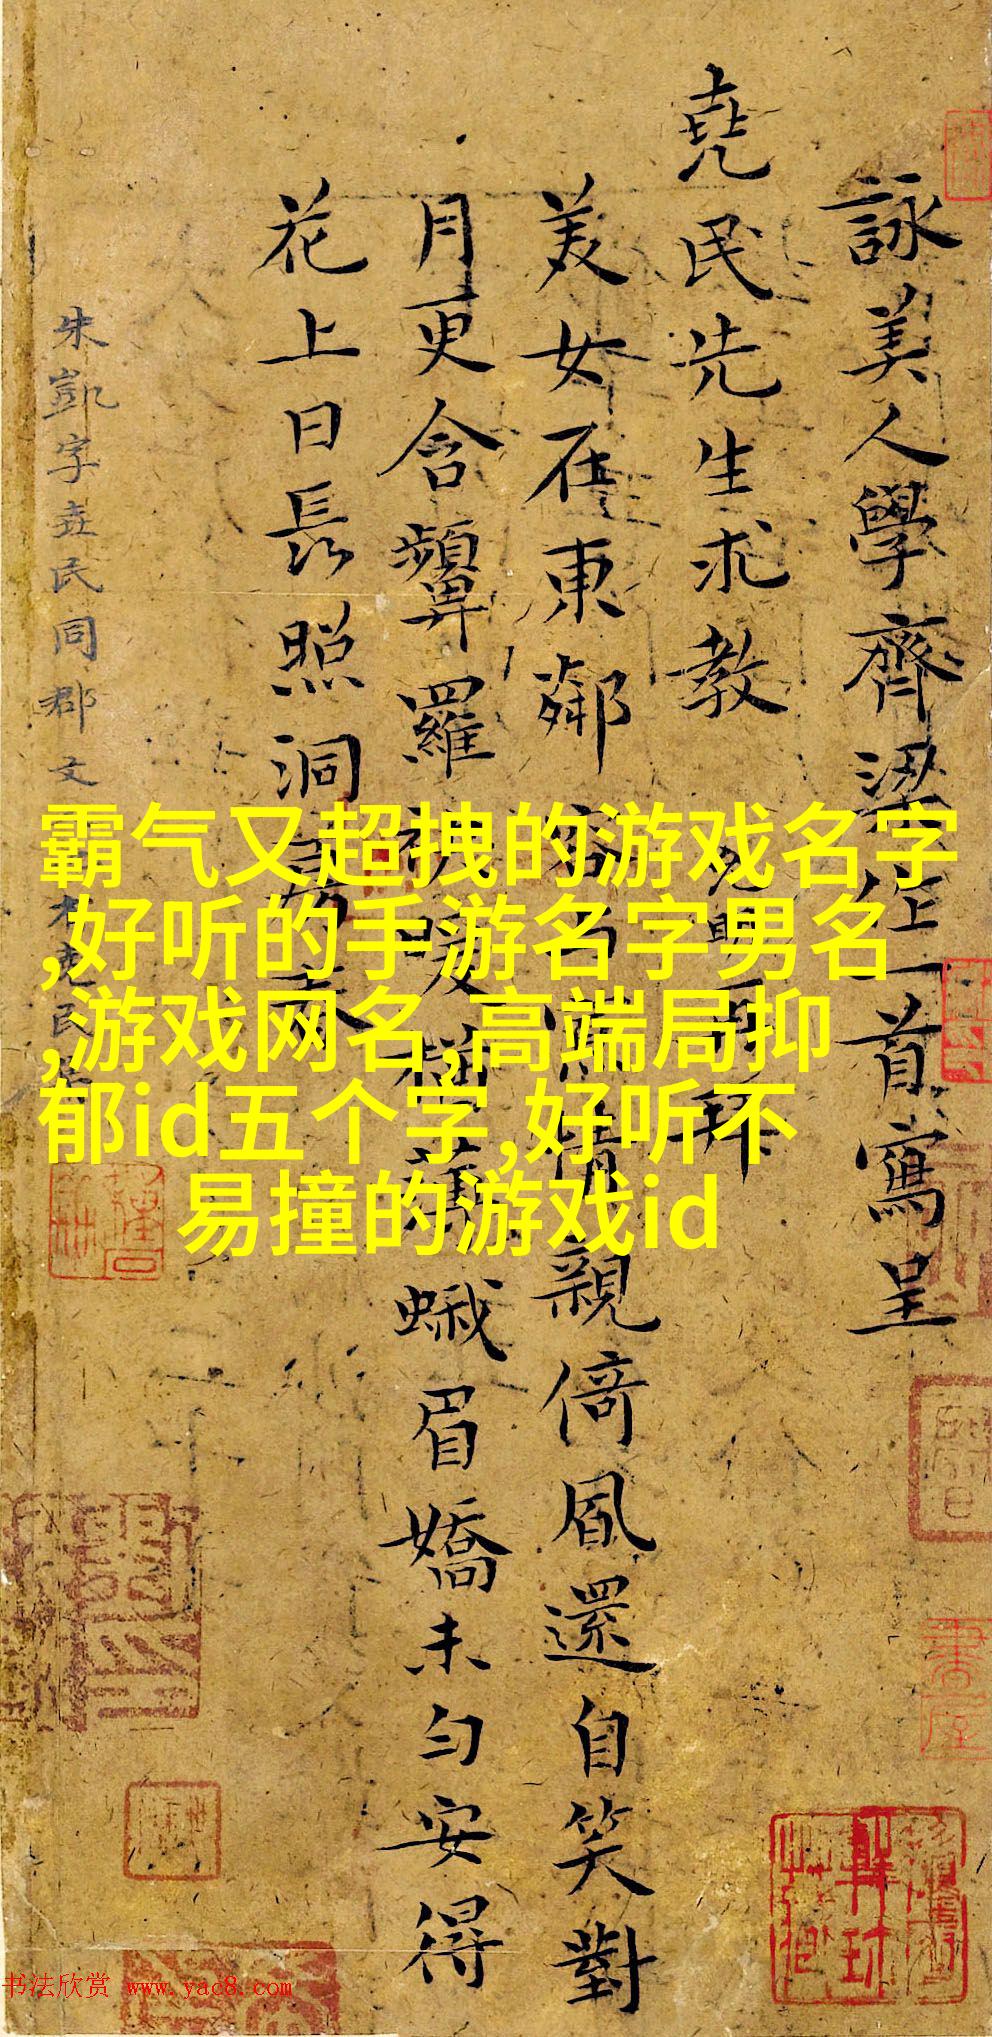 詠美人學齊梁一首寫呈
堯民先生求教 再拜
美女在東鄰容情親倚風還自笑對
月更含顰羅暖舊蛾眉嬌未匀安得
花上日長照洞春
朱凱字堯民同郡文堯民
霸气又超拽的游戏名字
,好听的手游名字男名
,游戏网名,高端局抑
郁id五个字,好听不
易撞的游戏id
书法欣赏 www.yac8.com